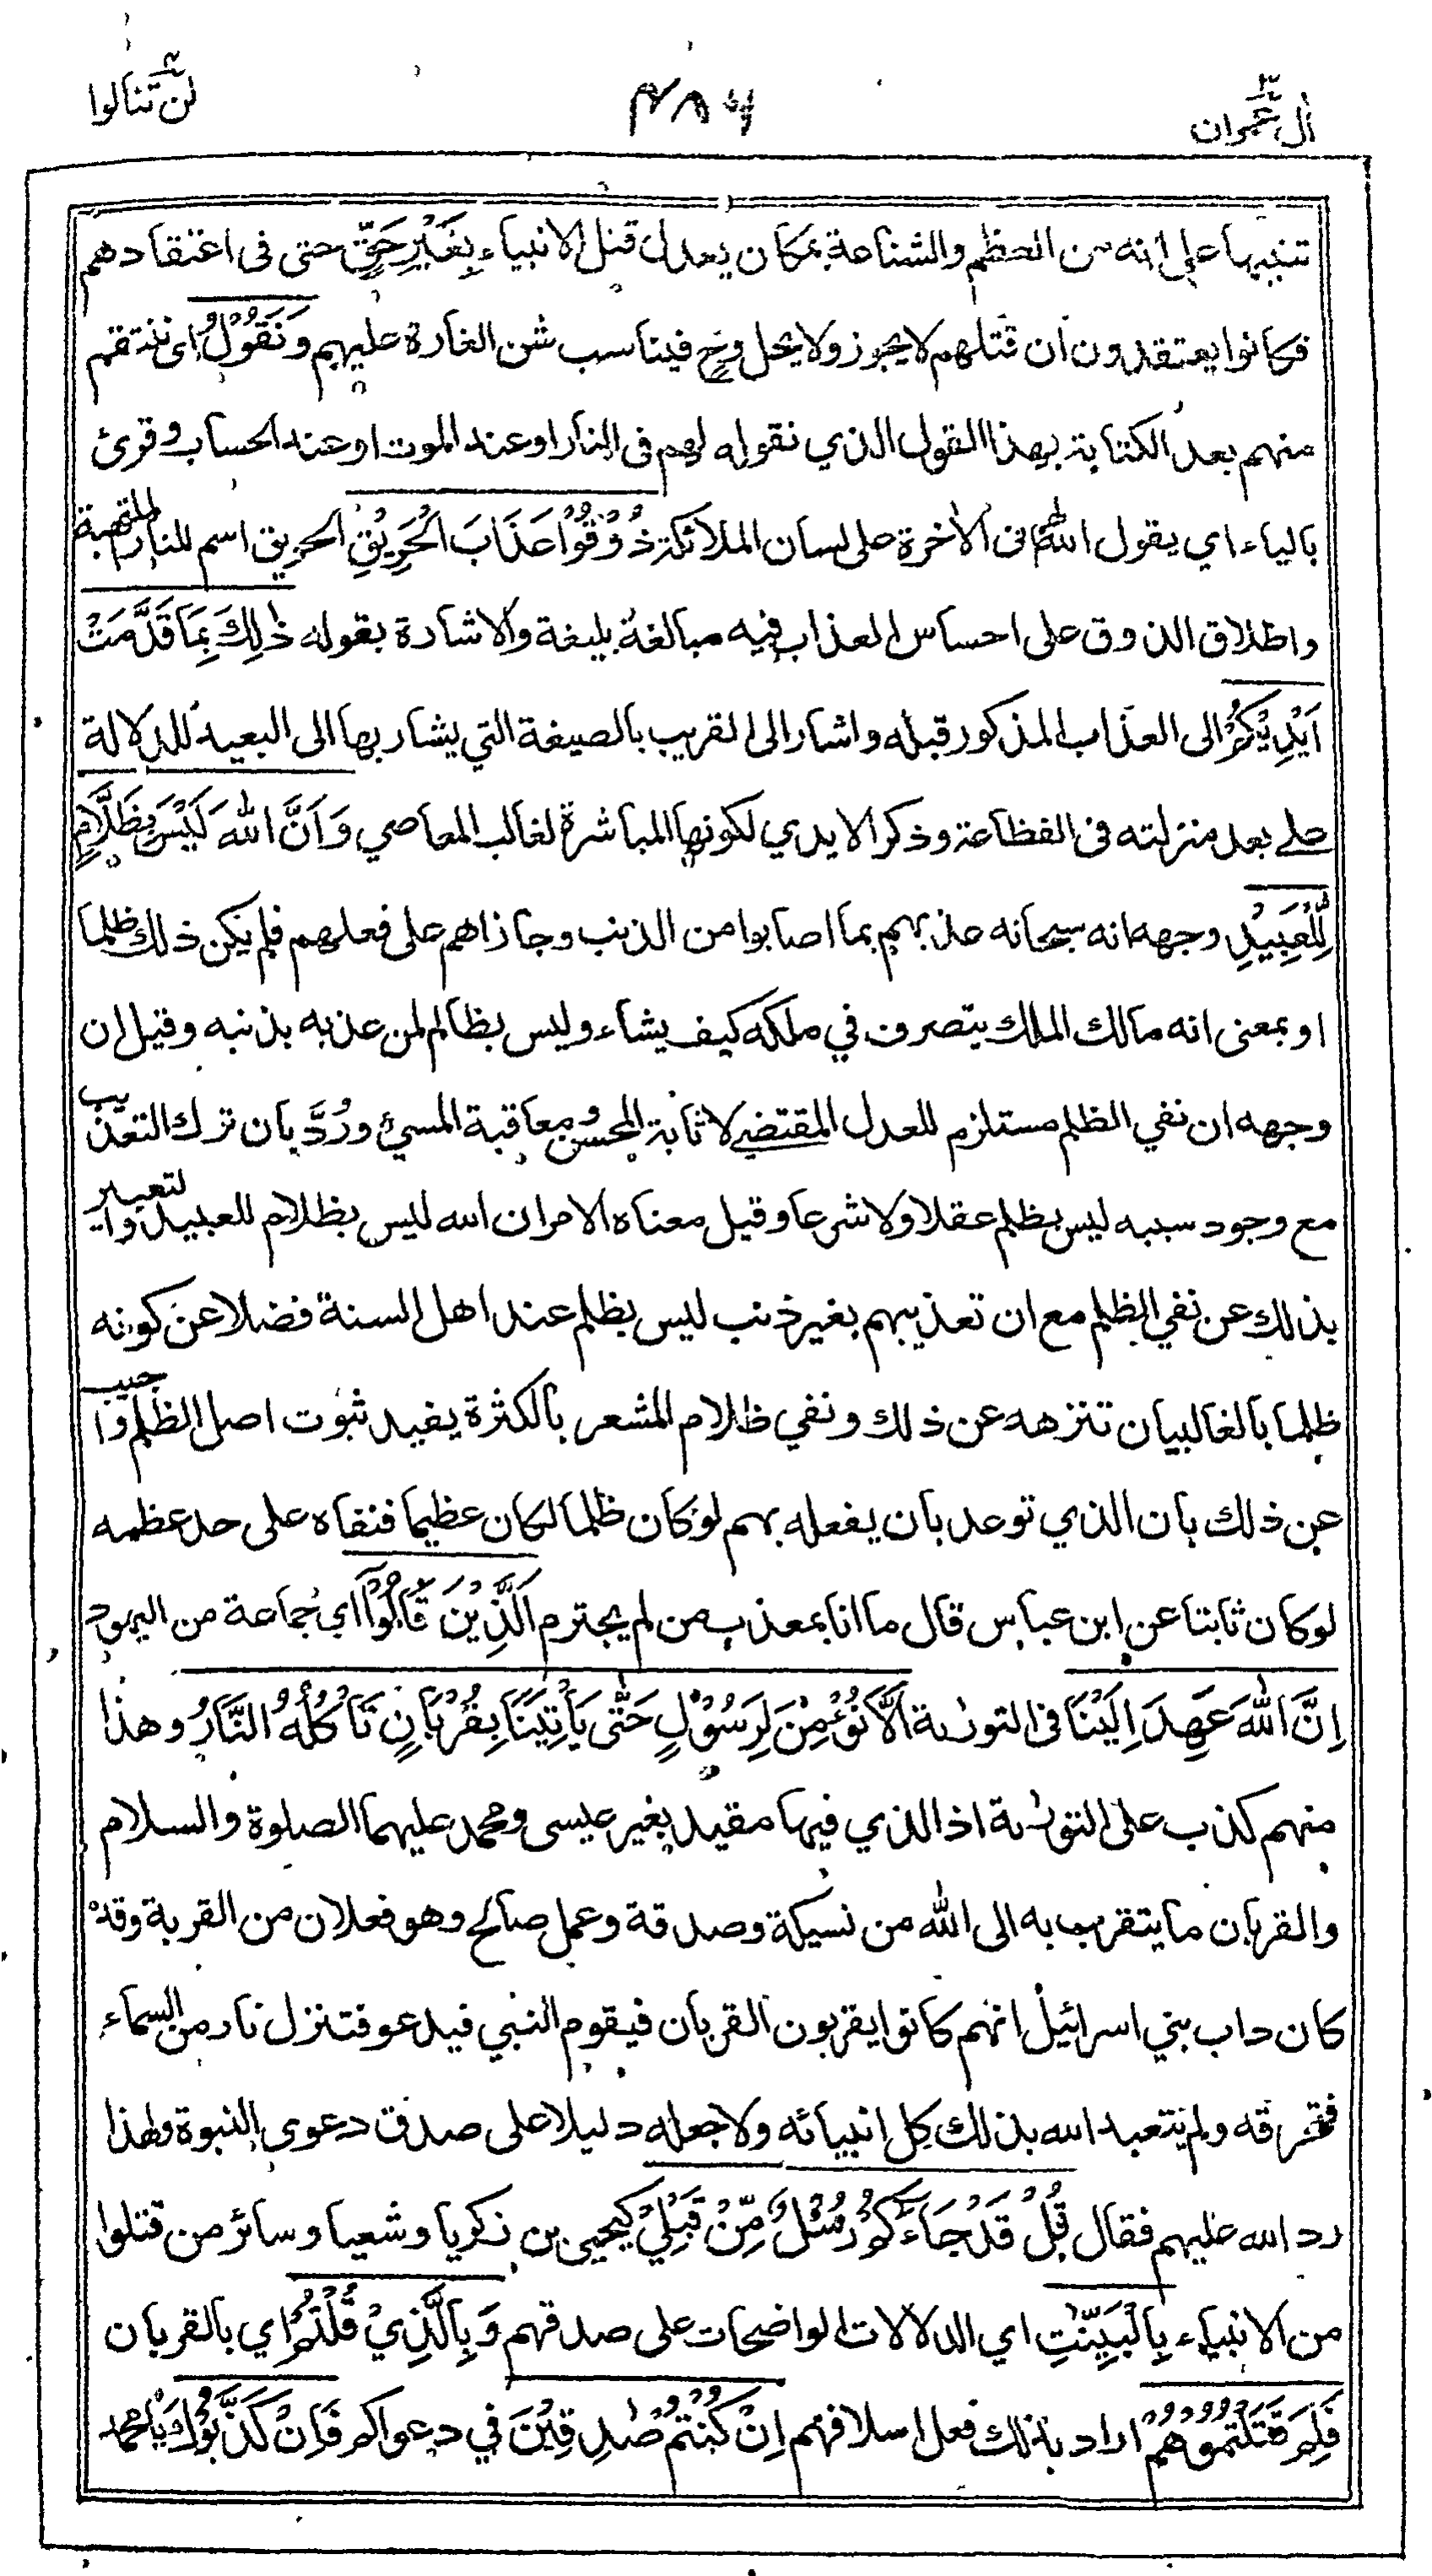 اٰل عمران ٣
٤٨٦
لن تنالوا ٤
تنبيها على انه من العظم والشناعة بمكان يعدل قتل الانبياء بِغَيْرِ حَقٍّ حتى فى اعتقادهم
فكانوا يعتقدون ان قتلهم لا يجوز ولا يحل وح فيناسب شن الغارة عليهم وَنَقُوْلُ اى ننتقم
منهم بعد الكتابة بهذا القول الذي نقوله لهم فى النار او عند الموت او عند الحساب وقرئ
بالياء اي يقول الله فى الاٰخرة على لسان الملائكة ذُوْقُوْا عَذَابَ الْحَرِيْقِ الحريق اسم للنار الملتهبة
واطلاق الذوق على احساس العذاب فيه مبالغة بليغة والاشارة بقوله ذٰلِكَ بِمَا قَدَّمَتْ
اَيْدِيْكُمْ الى العذاب المذكور قبله واشار الى القريب بالصيغة التي يشار بها الى البعيد للدلالة
على بعد منزلته فى الفظاعة وذكر الايدي لكونها المباشرة لغالب المعاصي وَاَنَّ اللّٰهَ لَيْسَ بِظَلَّامٍ
لِّلْعَبِيْدِ وجهه انه سبحانه عذبهم بما اصابوا من الذنب وجازاهم على فعلهم فلم يكن ذلك ظلما
او بمعنى انه مالك الملك يتصرف في ملكه كيف يشاء وليس بظالم لمن عذبه بذنبه وقيل ان
وجهه ان نفي الظلم مستلزم للعدل المقتضي لاثابة المحسن ومعاقبة المسيئ ورُدَّ بان ترك التعذيب
مع وجود سببه ليس بظلم عقلا ولا شرعا وقيل معناه الامر ان الله ليس بظلام للعبيد والتعبير
بذلك عن نفي الظلم مع ان تعذيبهم بغير ذنب ليس بظلم عند اهل السنة فضلا عن كونه
ظلما بالغا لبيان تنزهه عن ذلك ونفي ظلام المشعر بالكثرة يفيد ثبوت اصل الظلم واجيب
عن ذلك بان الذي توعد بان يفعله بهم لو كان ظلما لكان عظيما فنفاه على حد عظمه
لو كان ثابتا عن ابن عباس قال ما انا بمعذب من لم يجترم اَلَّذِيْنَ قَالُوْٓا اي جماعة من اليهود
اِنَّ اللّٰهَ عَهِدَ اِلَيْنَا فى التورٰىة اَلَّا نُؤْمِنَ لِرَسُوْلٍ حَتّٰى يَاْتِيَنَا بِقُرْبَانٍ تَاْكُلُهُ النَّارُ وهذا
منهم كذب على التورٰىة اذ الذي فيها مقيد بغير عيسى ومحمد عليهما الصلوة والسلام
والقربان ما يتقرب به الى الله من نسيكة وصدقة وعمل صالح وهو فعلان من القربة وقد
كان داب بني اسرائيل انهم كانوا يقربون القربان فيقوم النبي فيدعو فتنزل نار من السماء
فتحرقه ولم يتعبد الله بذلك كل انبيائه ولا جعله دليلا على صدق دعوى النبوة ولهذا
رد الله عليهم فقال قُلْ قَدْ جَآءَكُمْ رُسُلٌ مِّنْ قَبْلِيْ كيحيى بن زكريا وشعيا وسائر من قتلوا
من الانبياء بِالْبَيِّنٰتِ اي الدلالات الواضحات على صدقهم وَبِالَّذِيْ قُلْتُمْ اي بالقربان
فَلِمَ قَتَلْتُمُوْهُمْ اراد بذلك فعل اسلافهم اِنْ كُنْتُمْ صٰدِقِيْنَ في دعواكم فَاِنْ كَذَّبُوْكَ يا محمد